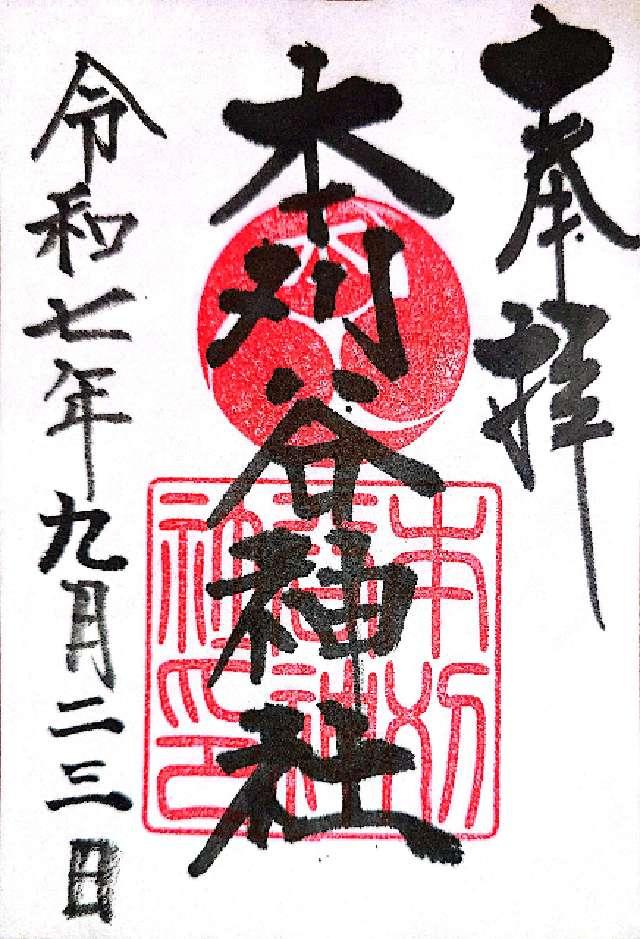 奉拝
本刈谷神社
本刈
谷神
社印
令和七年九月二三日